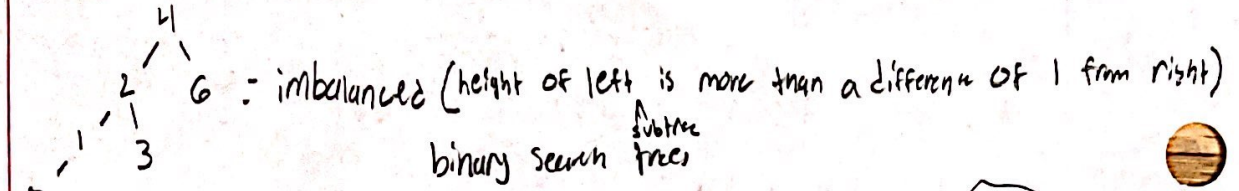 4
2 6 : imbalanced (height of left is more than a difference of 1 from right)
subtree
1 3 binary search trees